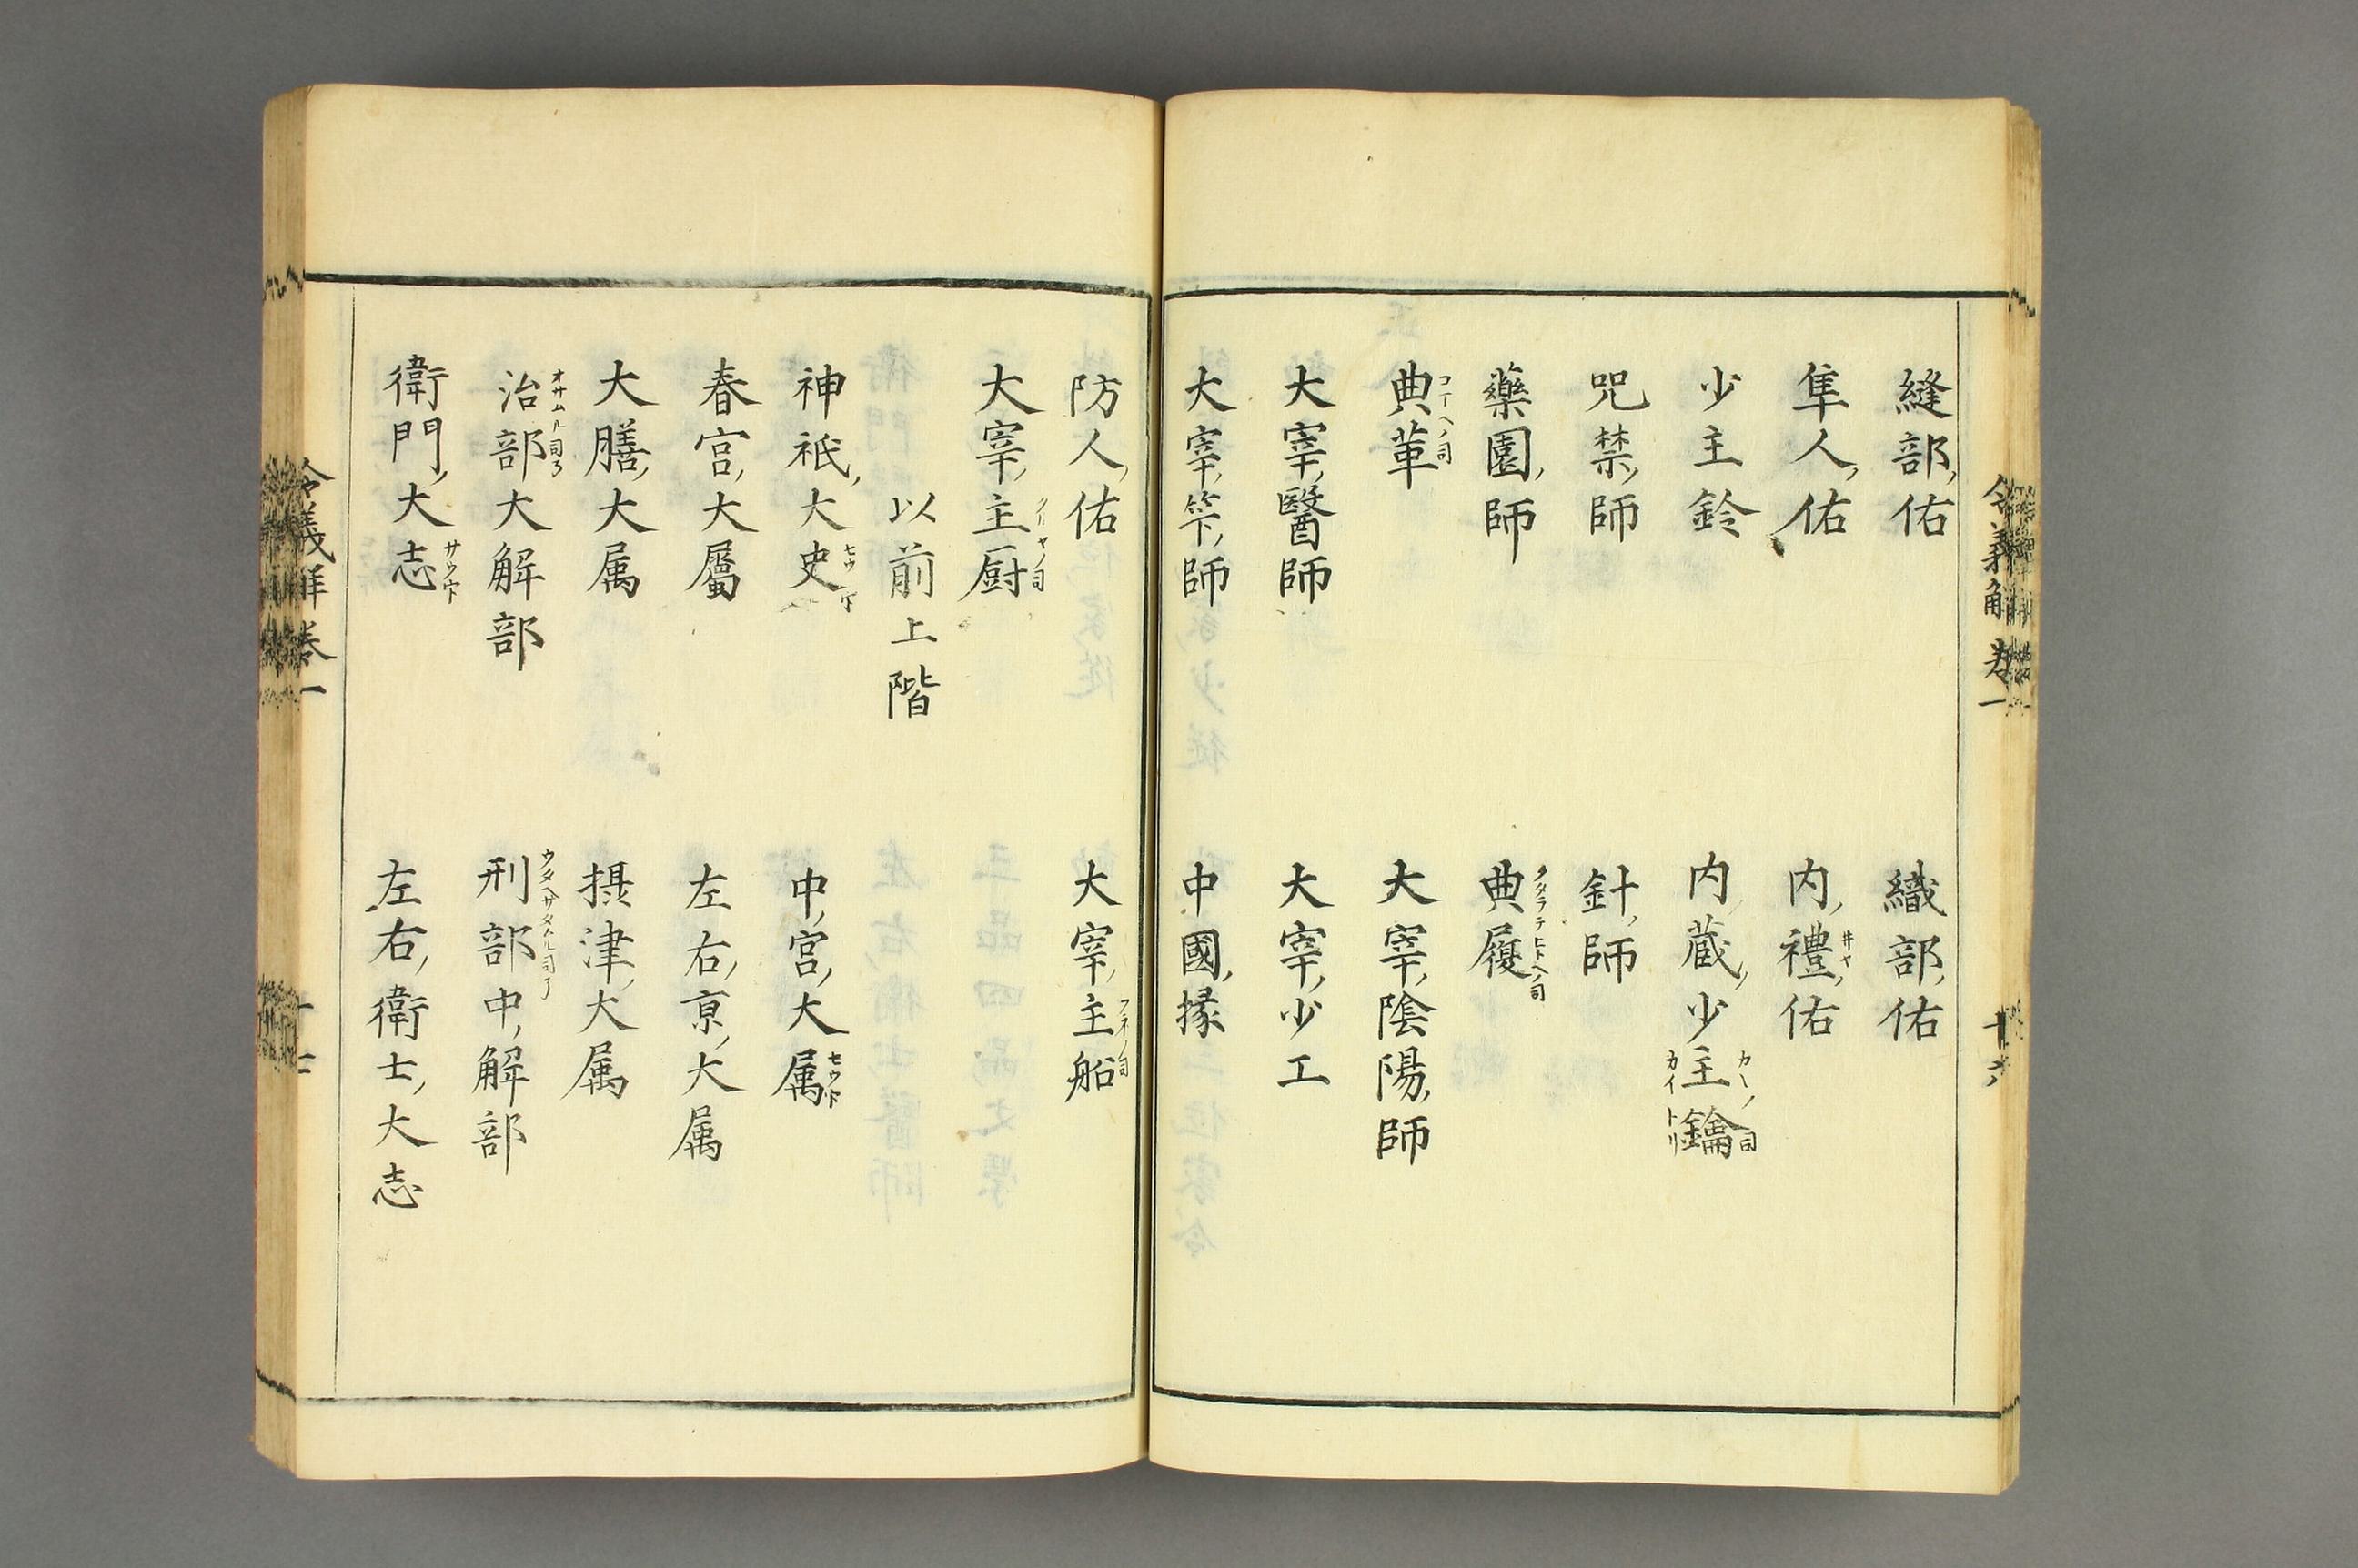 令義解卷一 十六
縫部佑 織部佑
隼人佑 内禮佑
少主鈴 内蔵少主鑰
咒禁師 針師
藥園師 典履
典革 大宰陰陽師
大宰醫師 大宰少工
大宰筭師 中國掾
防人佑 大宰主船
大宰主厨
以前上階
神祇大史 中宮大属
春宮大屬 左右亰大属
大膳大属 摂津大属
治部大解部 刑部中解部
衛門大志 左右衛士大志
令義解卷一